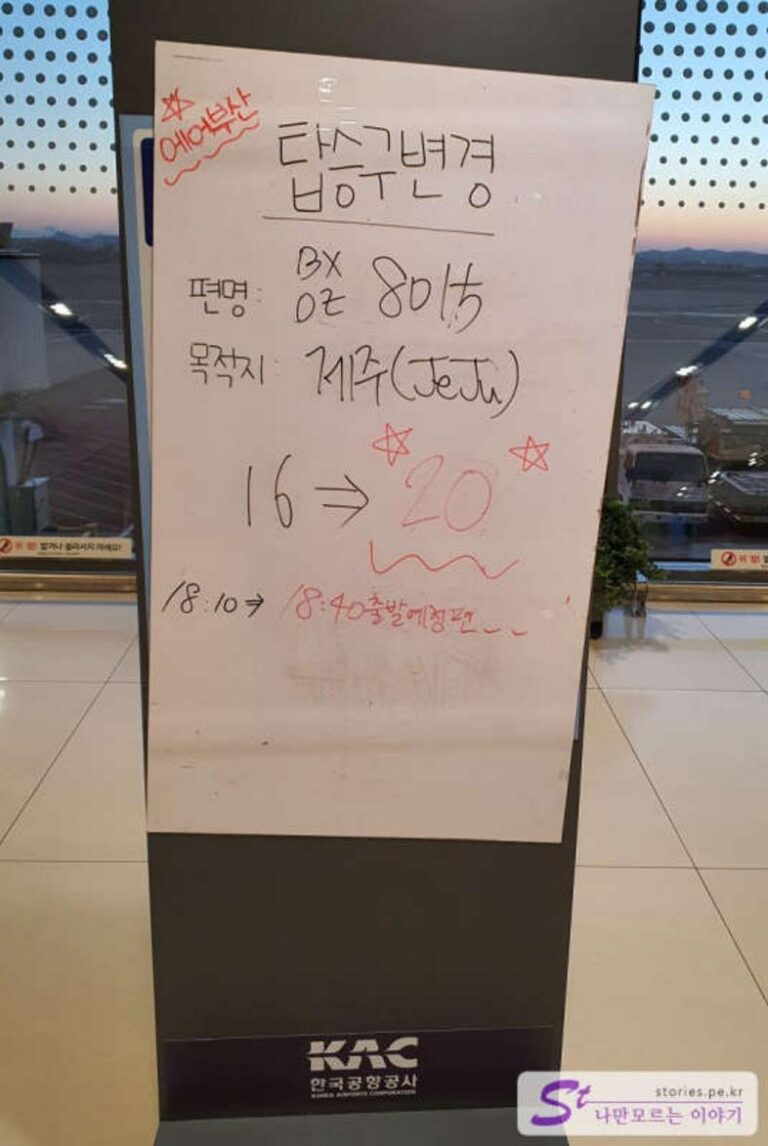 ☆
에어부산
탑승구변경
편명: BX OZ 8015
목적지: 제주(JeJu)
16 ⇒ ☆ 20 ☆
18:10 ⇒ 18:40출발예정편
위 험! 밟거나 올라서지 마세요!
위 험!
KAC
한국공항공사
KOREA AIRPORTS CORPORATION
St
stories.pe.kr
나만모르는 이야기